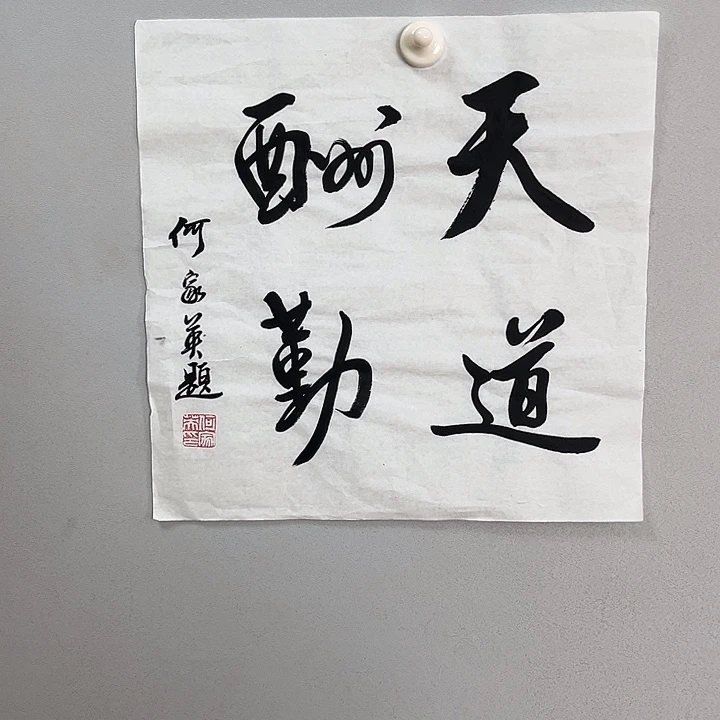 天道
酬勤
何家英題
何家英印